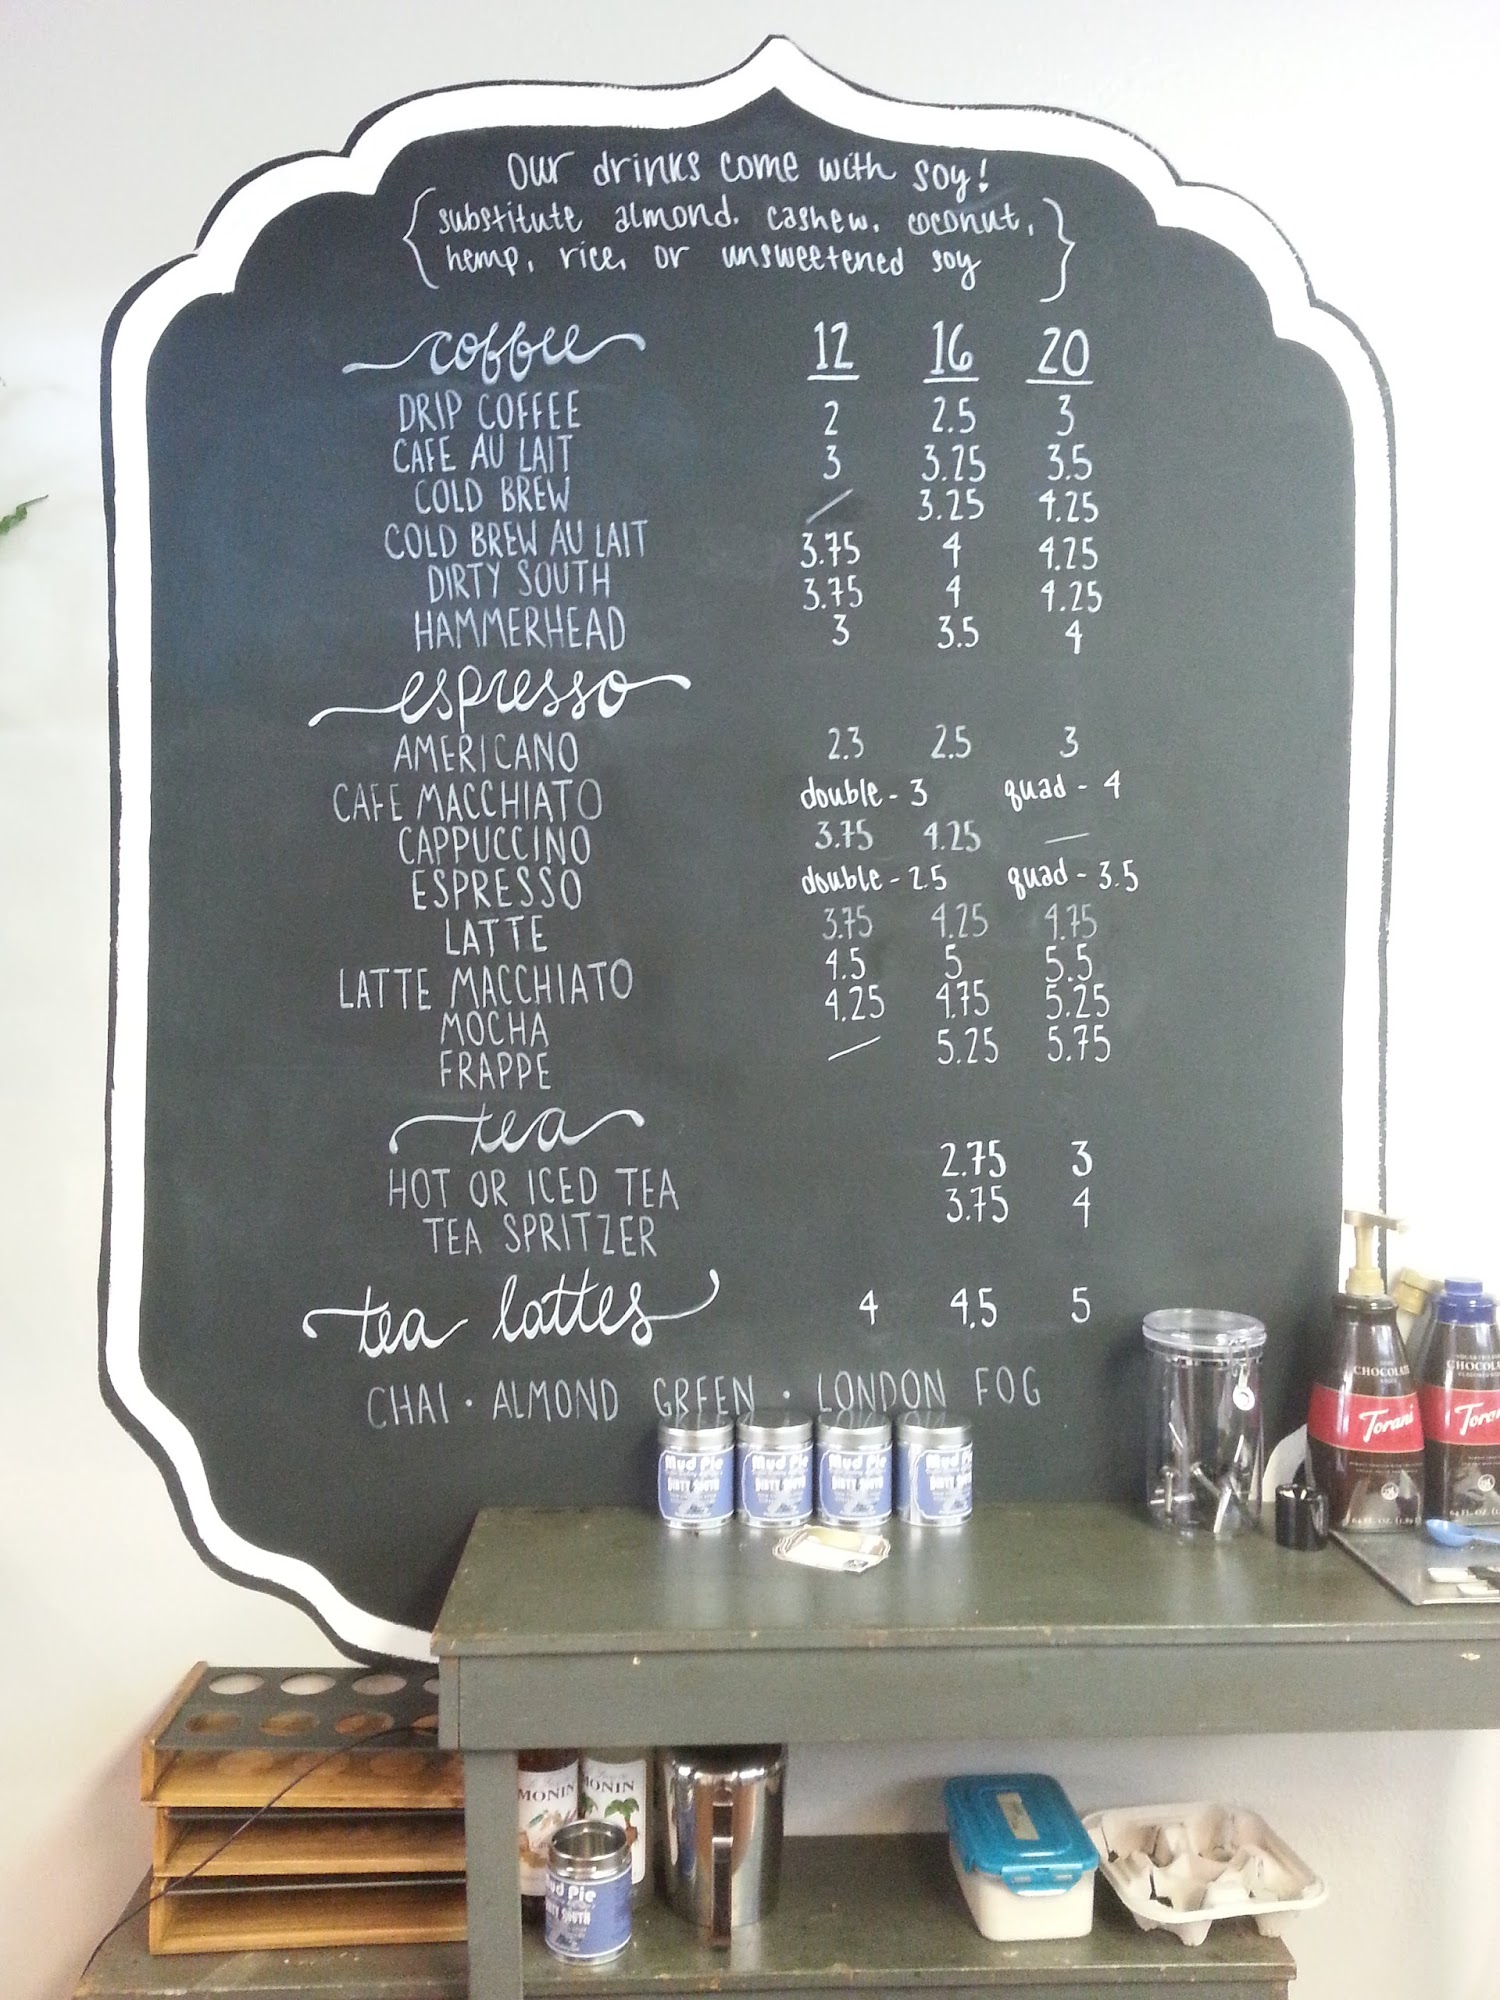 our drinks come with soy!
{substitute almond. cashew. coconut,
hemp, rice, or unsweetened soy}
coffee 12 16 20
DRIP COFFEE 2 2.5 3
CAFE AU LAIT 3 3.25 3.5
COLD BREW / 3.25 4.25
COLD BREW AU LAIT 3.75 4 4.25
DIRTY SOUTH 3.75 4 4.25
HAMMERHEAD 3 3.5 4
espresso
AMERICANO 2.3 2.5 3
CAFE MACCHIATO double - 3 quad - 4
CAPPUCCINO 3.75 4.25 —
ESPRESSO double - 2.5 quad - 3.5
LATTE 3.75 4.25 4.75
LATTE MACCHIATO 4.5 5 5.5
MOCHA 4.25 4.75 5.25
FRAPPE — 5.25 5.75
tea
HOT OR ICED TEA 2.75 3
TEA SPRITZER 3.75 4
tea lattes 4 4.5 5
CHAI · ALMOND GREEN · LONDON FOG
Mud Pie DIRTY SOUTH
Mud Pie DIRTY SOUTH
Mud Pie DIRTY SOUTH
Mud Pie DIRTY SOUTH
CHOCOLATE
Torani
CHOCOLA
Tora
64 FL. OZ.
64 FL. OZ.
MONIN
MONIN
Mud Pie
DIRTY SOUTH